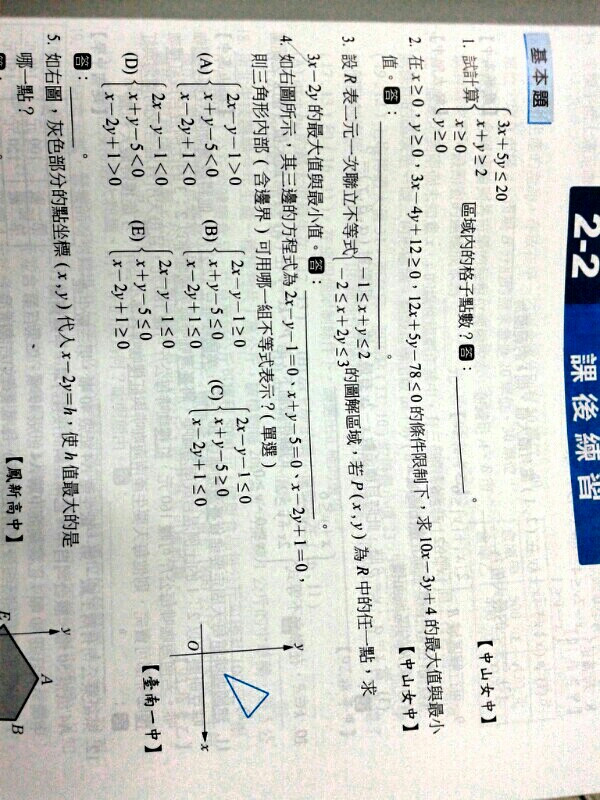 2-2 課後練習
基本題
1. 試計算{3x+5y≤20 x+y≥2 x≥0 y≥0 區域內的格子點數？答：________。【中山女中】
2. 在x≥0，y≥0，3x−4y+12≥0，12x+5y−78≤0的條件限制下，求10x−3y+4的最大值與最小
值。答：________。【中山女中】
3. 設R表二元一次聯立不等式{−1≤x+y≤2 −2≤x+2y≤3的圖解區域，若P(x,y)為R中的任一點，求
3x−2y的最大值與最小值。答：________。
4. 如右圖所示，其三邊的方程式為2x−y−1=0、x+y−5=0、x−2y+1=0，
則三角形內部(含邊界)可用哪一組不等式表示？(單選)
(A){2x−y−1>0 x+y−5<0 x−2y+1<0 (B){2x−y−1≥0 x+y−5≤0 x−2y+1≤0 (C){2x−y−1≤0 x+y−5≥0 x−2y+1≤0
(D){2x−y−1<0 x+y−5<0 x−2y+1>0 (E){2x−y−1≤0 x+y−5≤0 x−2y+1≥0
答：________。【臺南一中】
y
O
x
5. 如右圖，灰色部分的點坐標(x,y)代入x−2y=h，使h值最大的是
哪一點？【鳳新高中】
y
A
B
E